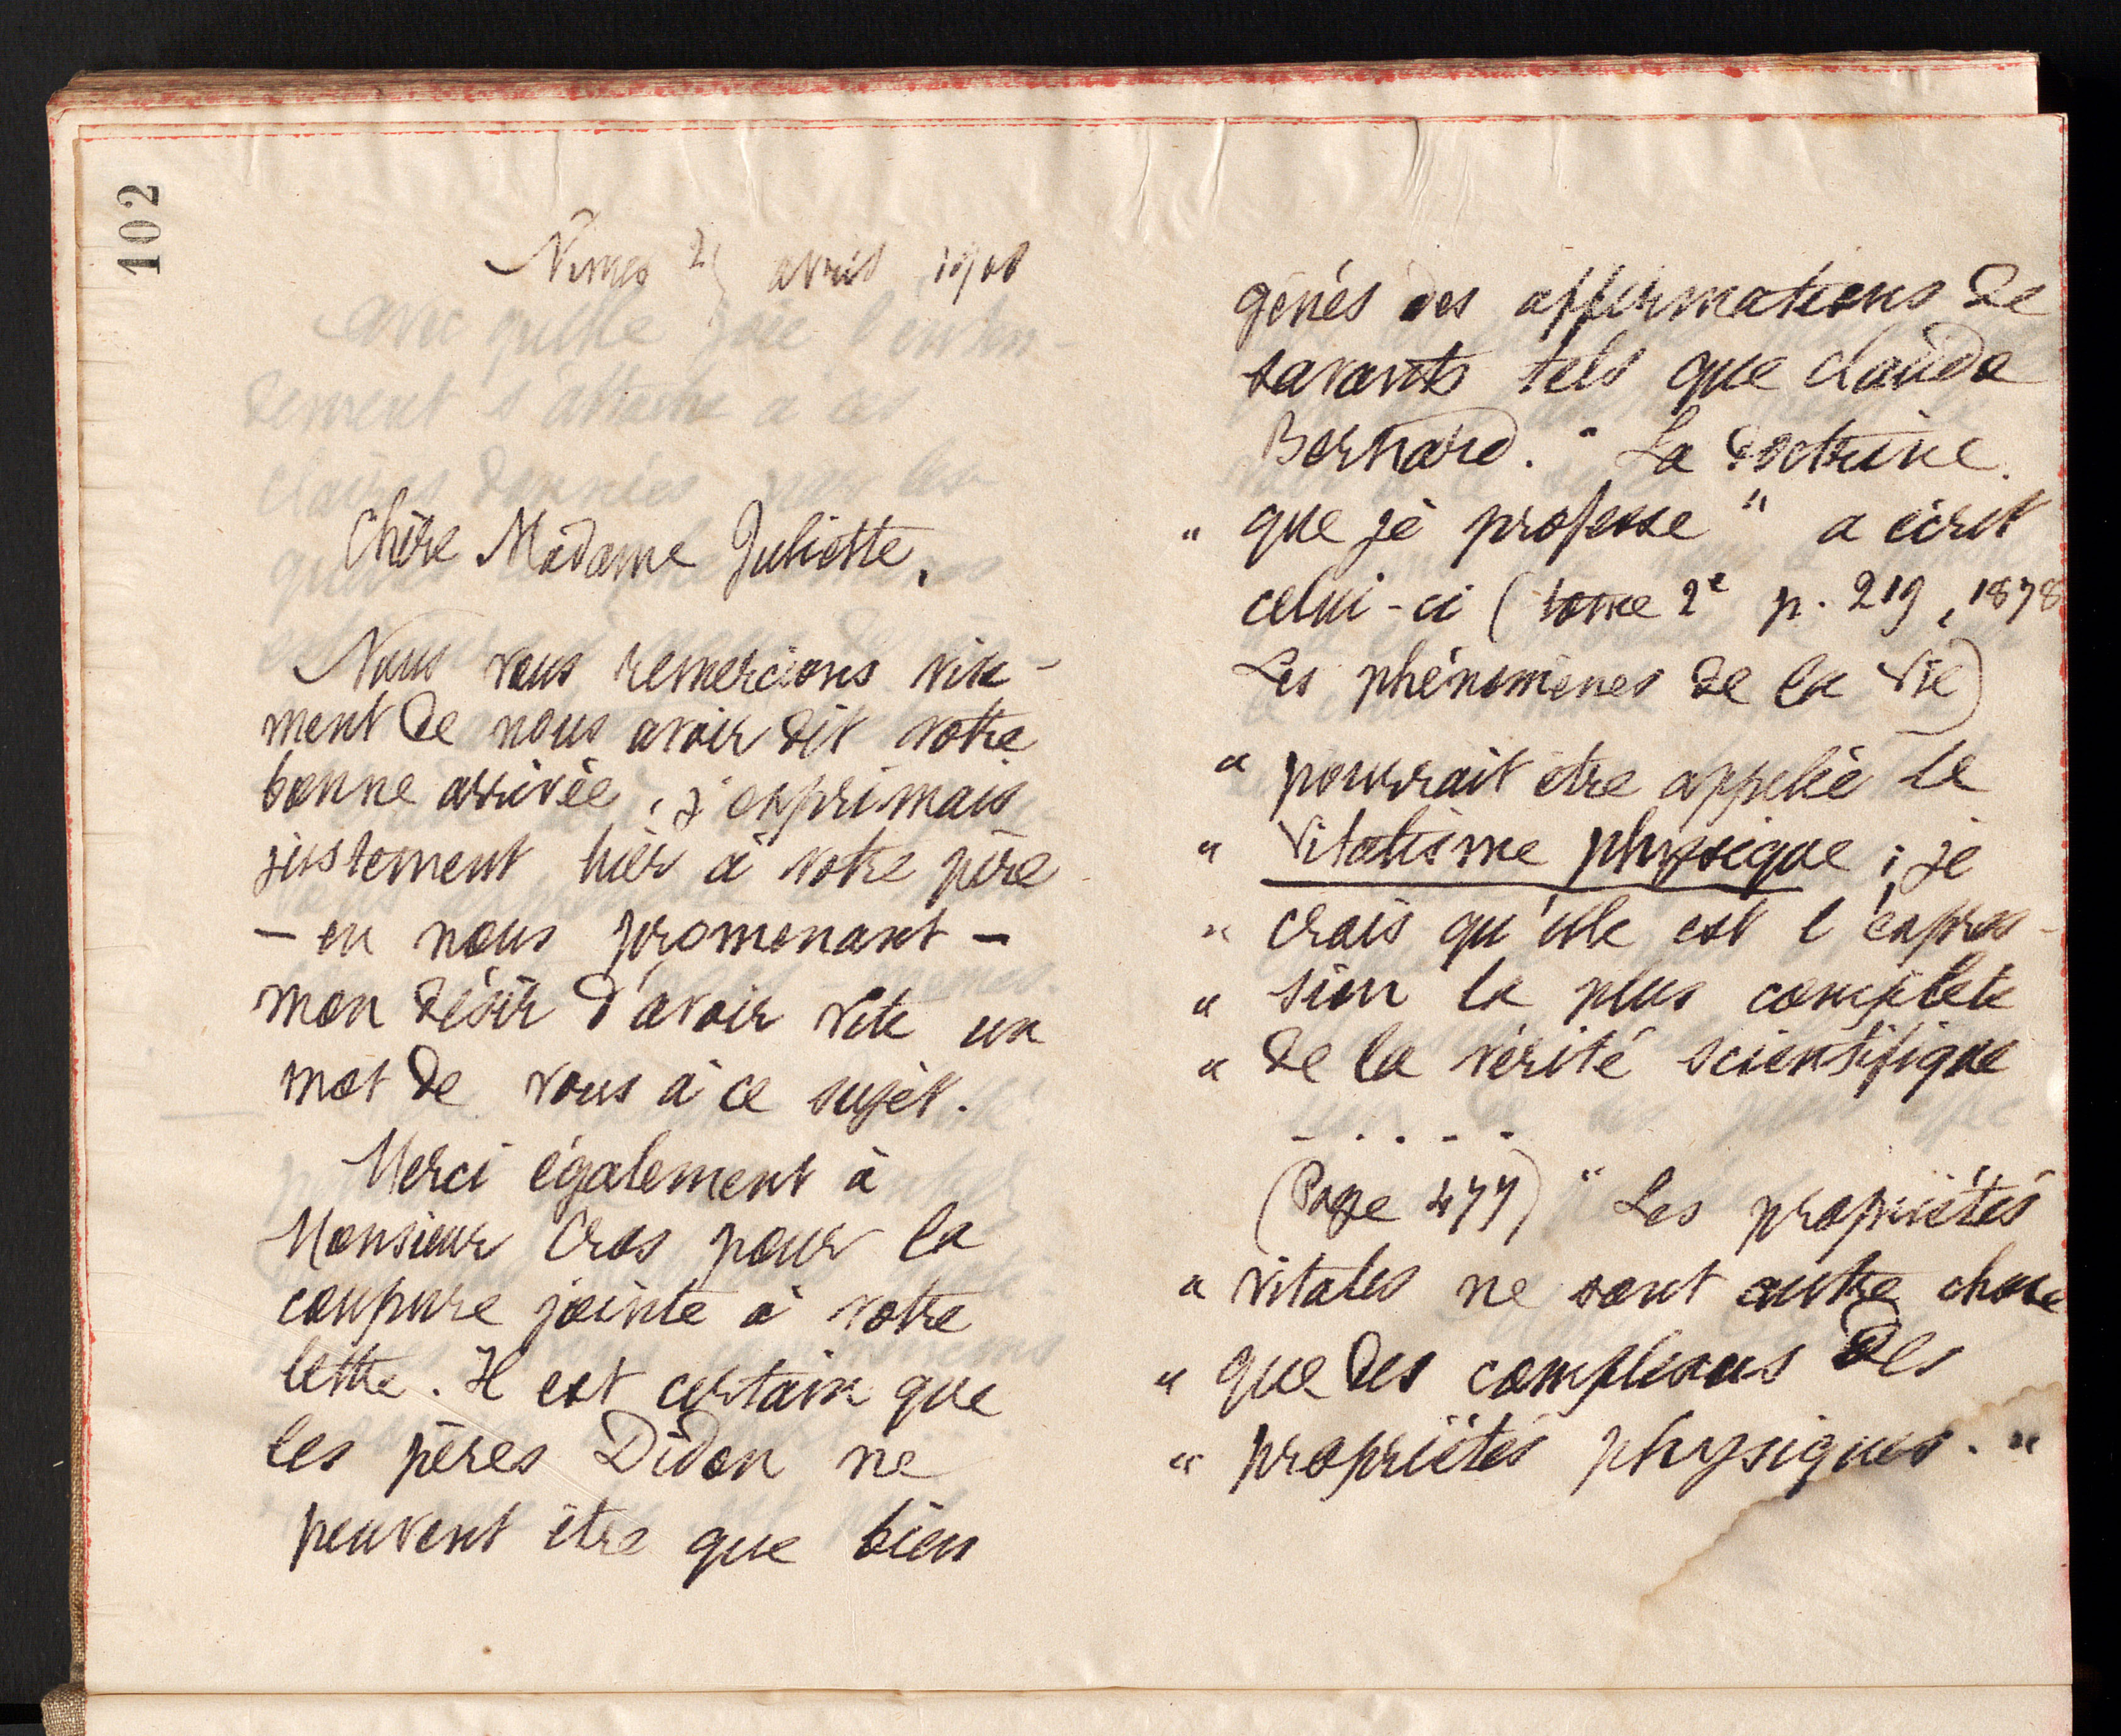 102
Nimes avril
Chère Madame Juliette,
Nous vous remercions vive-
ment de nous avoir dit votre
bonne arrivée, j'exprimais
justement hier à votre père
- en nous promenant -
mon désir d'avoir vite un
mot de vous à ce sujet.
Merci également à
Monsieur Cros pour la
coupure jointe à votre
lettre. Il est certain que
les pères Didon ne
peuvent être que bien
génés des affirmations de
savants tels que Claude
Bernard. " La doctrine
" que je professe " a écrit
celui-ci (tome 2e p. 219, 1878
Les phénomènes de la vie)
" pourrait être appelée le
" Vitalisme physique ; je
" crois qu'elle est l'expres-
" sion la plus complète
" de la vérité scientifique
- . . . - -
(Page 477) " Les propriétés
" vitales ne sont autre chose
" que des complexus des
" propriétés physiques. "